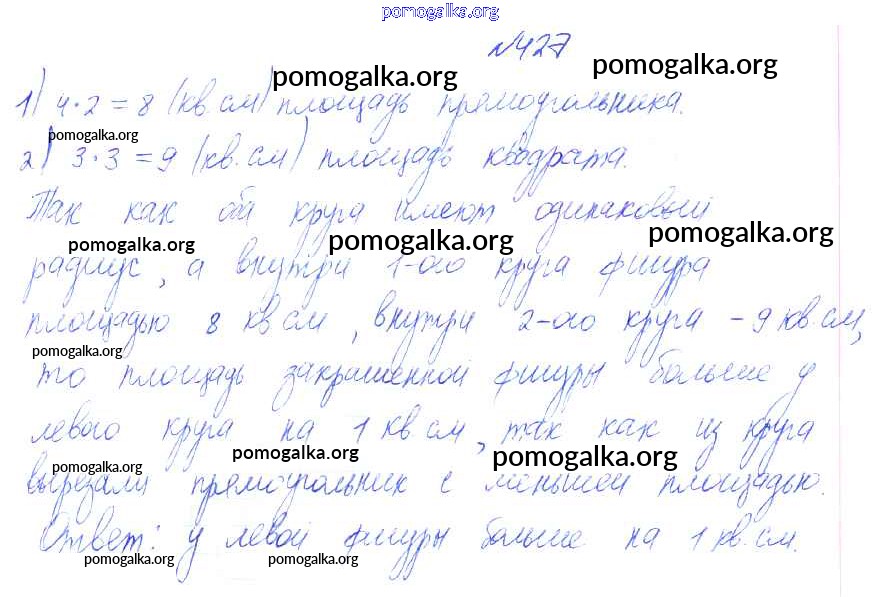 pomogalka.org
№427
pomogalka.org
pomogalka.org
1) 4·2=8 (кв.см) площадь прямоугольника.
pomogalka.org
2) 3·3=9 (кв.см) площадь квадрата.
Так как оба круга имеют одинаковый
pomogalka.org
pomogalka.org
pomogalka.org
радиус, а внутри 1-ого круга фигура
площадью 8 кв см, внутри 2-ого круга - 9 кв.см,
pomogalka.org
то площадь закрашенной фигуры больше у
левого круга на 1 кв.см, так как из круга
pomogalka.org
pomogalka.org
pomogalka.org
вырезали прямоугольник с меньшей площадью.
Ответ: у левой фигуры больше на 1 кв.см.
pomogalka.org
pomogalka.org